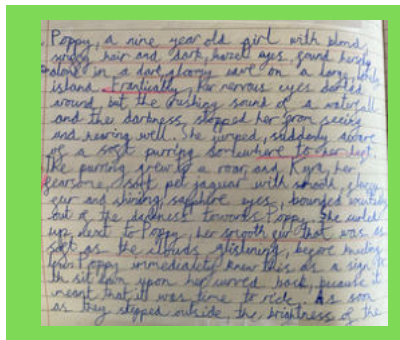 Poppy, a nine year old girl with blond,
hair and dark, hazel eyes, found herself
alone in a dark gloomy cave on a large, lonely
island. Frantically, her nervous eyes darted
around, but the rushing sound of a waterfall
and the darkness, stopped her from seeing
and hearing well. She jumped, suddenly aware
of a soft purring somewhere to her left.
The purring grew to a roar and Kyra, her
fearsome, soft pet jaguar with smooth, glossy
fur and shining, sapphire eyes, bounded
out of the darkness towards Poppy. She curled
up next to Poppy, her smooth fur that was as
soft as the clouds glistening, before kneeling
down. Poppy immediately knew this as a sign to
sit down upon her curved back, because it
meant that it was time to ride. As soon
as they stepped outside, the brightness of the